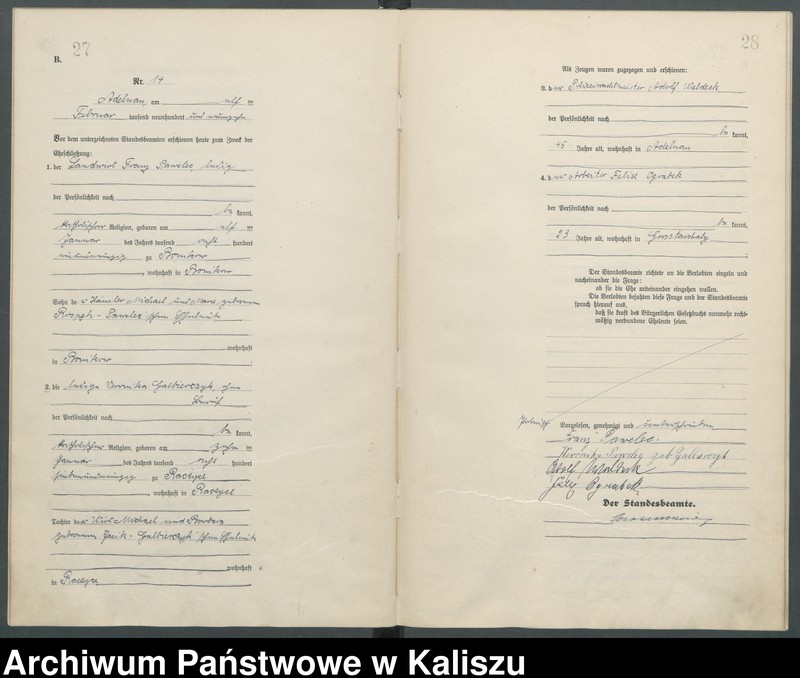 27
B.
Nr. 14
Adelnau, am elf ten
Februar tausend neunhundert und
Vor dem unterzeichneten Standesbeamten erschienen heute zum Zweck der
Eheschließung:
1. der Landwirt Franz Pawelec, ledig
der Persönlichkeit nach
be kannt,
katholischer Religion, geboren am elf ten
Januar des Jahres tausend acht hundert
zu Bonikow
, wohnhaft in Bonikow
Sohn der Häusler Michael und Marie geborenen
Pawelec'schen Eheleute
wohnhaft
in Bonikow
2. die ledige Veronika Galbierczyk, ohne
Beruf
der Persönlichkeit nach
be kannt,
katholischer Religion, geboren am zehn ten
Januar des Jahres tausend acht hundert
siebenundneunzig zu Raczyce
, wohnhaft in Raczyce
Tochter der Wirt Michael und Barbara
geborenen Jasik - Galbierczyk'schen Eheleute
wohnhaft
in Raczyce
28
Als Zeugen waren zugezogen und erschienen:
3. der Polizeiwachtmeister Adolf Waldeck
der Persönlichkeit nach
be kannt,
45 Jahre alt, wohnhaft in Adelnau
4. der Arbeiter Felix
der Persönlichkeit nach
be kannt,
23 Jahre alt, wohnhaft in
Der Standesbeamte richtete an die Verlobten einzeln und
nacheinander die Frage:
ob sie die Ehe miteinander eingehen wollen.
Die Verlobten bejahten diese Frage und der Standesbeamte
sprach hierauf aus,
daß sie kraft des Bürgerlichen Gesetzbuchs nunmehr recht-
mäßig verbundene Eheleute seien.
Vorgelesen, genehmigt und unterschrieben
Franz Pawelec.
geb.
Adolf Waldeck
Der Standesbeamte.
Archiwum Państwowe w Kaliszu